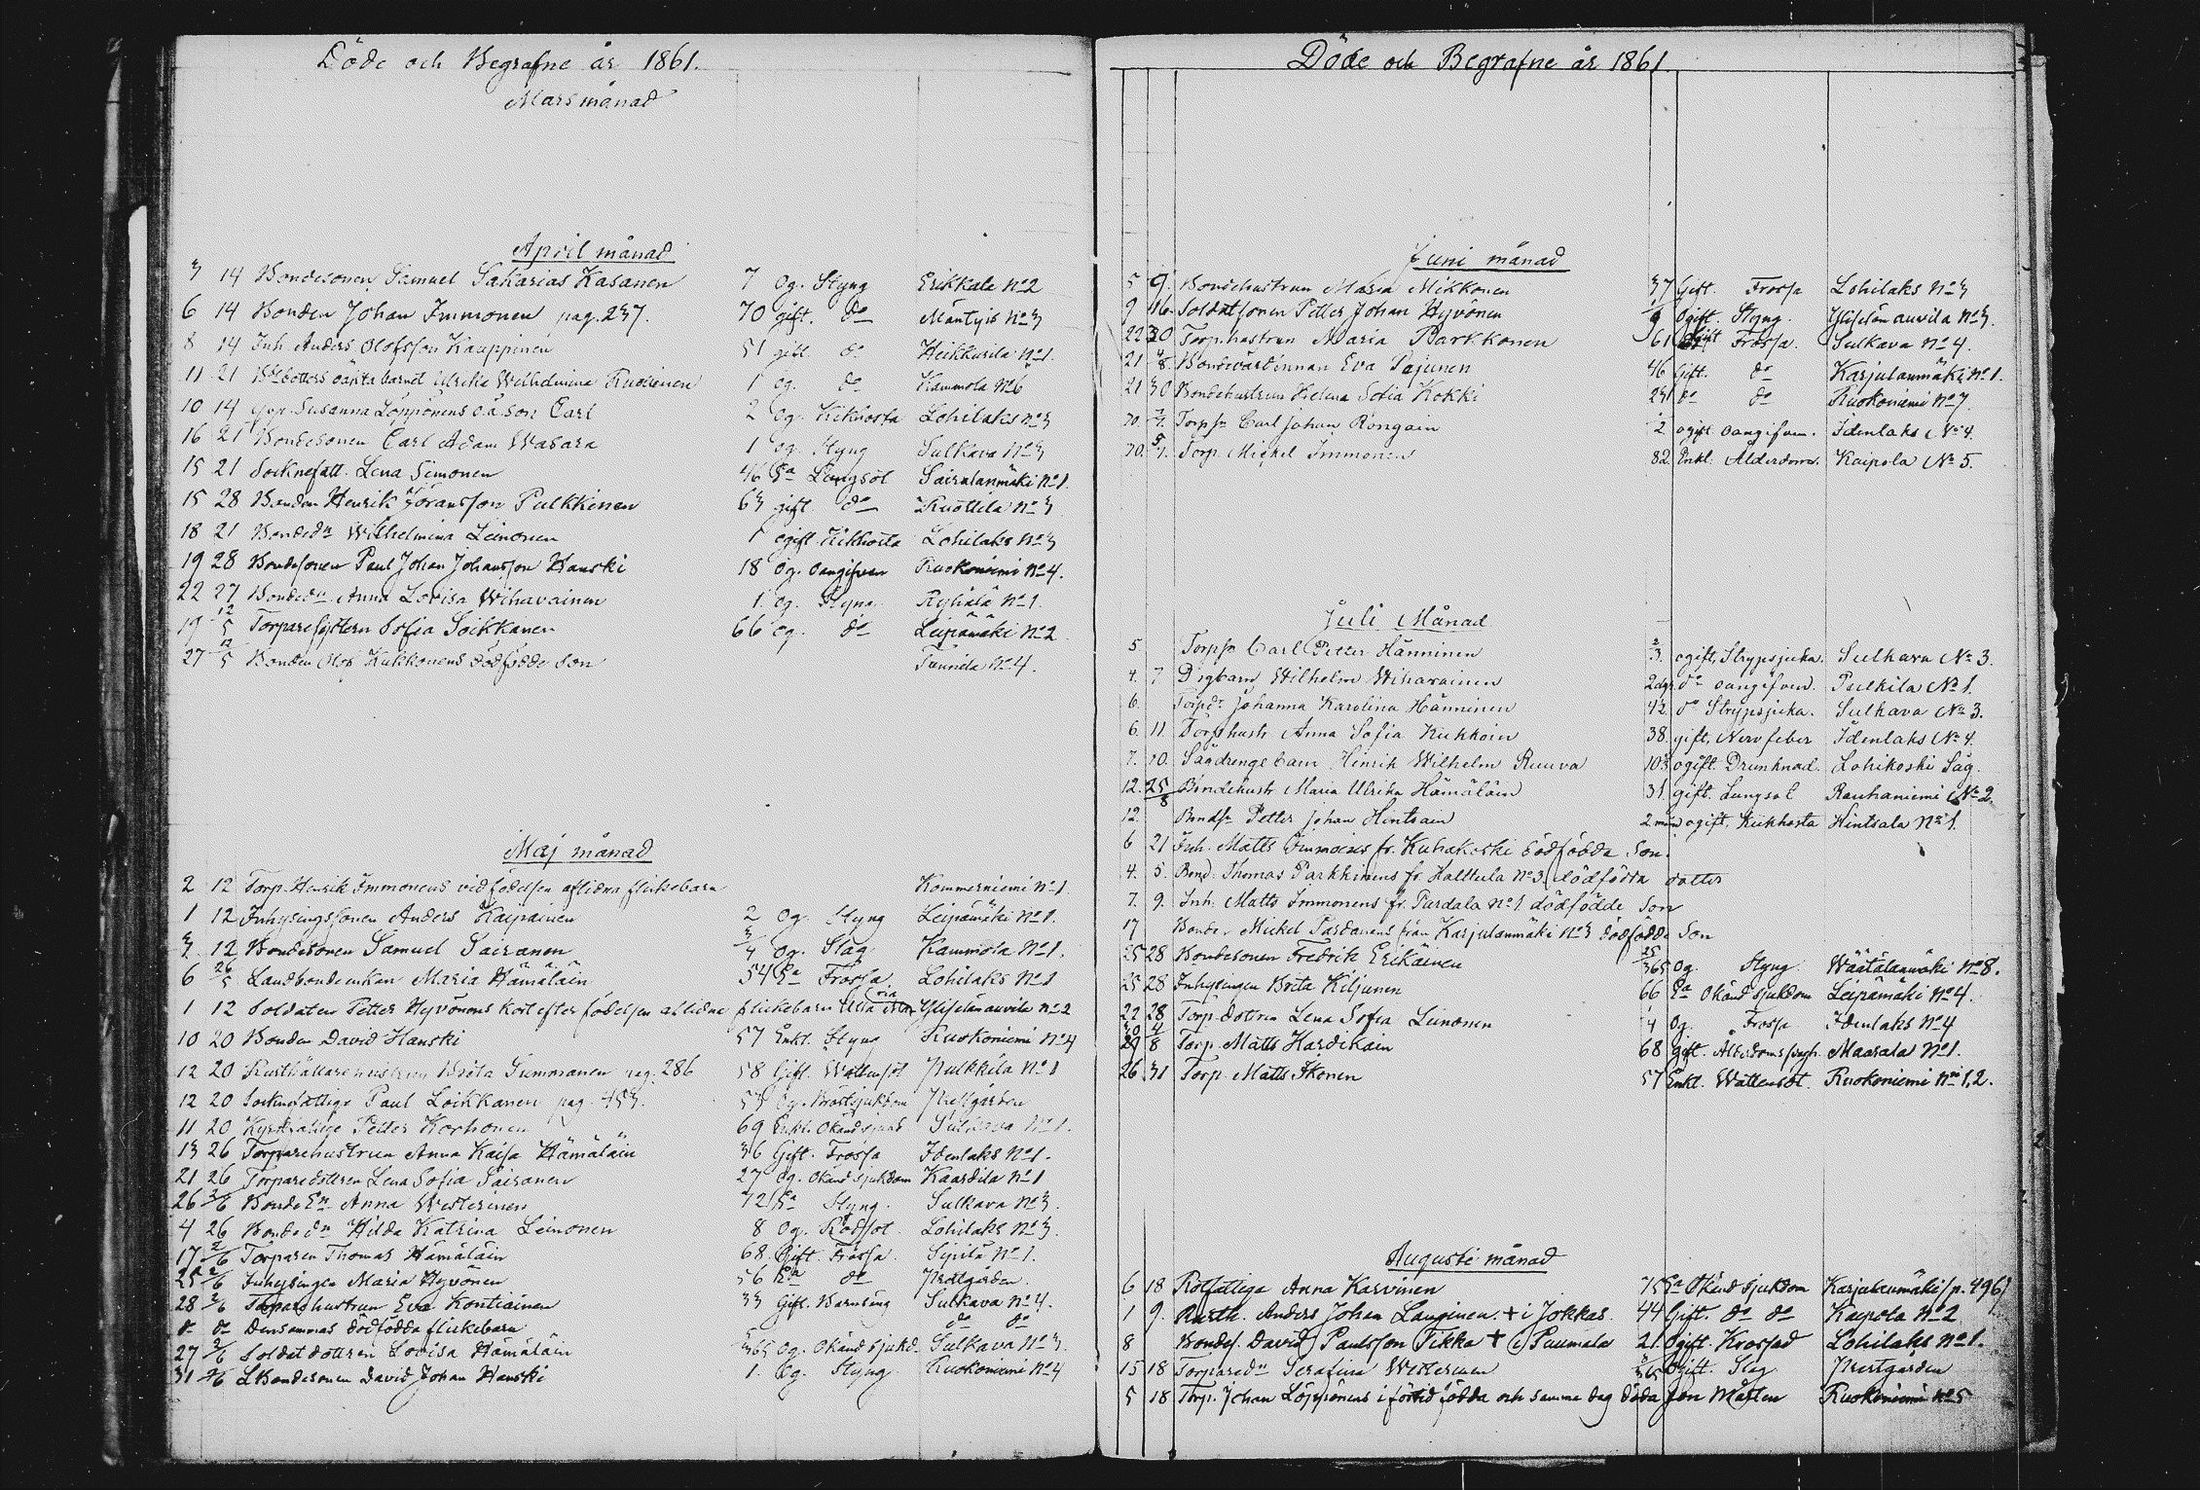 Döde och Begrafne år 1861.
Mars månad
April månad
3 14 Bondesonen Samuel Sakarias Kasanen 7 Og. Styng Erikkala No 2
6 14 Bonden Johan Immonen pag. 237. 70 gift. do Mäntyis No 3
8 14 Inh. Anders Olofsson Kauppinen 51 gift do Heikkurila No 1.
11 21 oäkta barnet Ulrika Wilhelmina 1 og. do Kammola No 6
10 14 Susanna Löppönens oä. son Carl 2 Og. Kikhosta Lohilaks No 3
16 21 Bondesonen Carl Adam Wasara 1 og. Styng Sulkava No 3
15 21 Socknefatt. Lena Simonen 46 Ea Lungsot Sairalanmäki No 1.
15 28 Bonden Henrik Göransson Pulkkinen 63 gift. do Ruottila No 3
18 21 Bondedn Wilhelmina Leinonen 1 ogift Kikhosta Lohilaks No 3
19 28 Bondesonen Paul Johan Johansson Hauski 18 Og. oangifven Ruokoniemi No 4.
22 27 Bondedn Anna Lovisa Wihavainen 1. Og. Styng Ryhälä No 1.
19 12/5 Torparesystern Sofia Soikkanen 66 og. do Leipämäki No 2
27 12/5 Bonden Olof Kukkonens dödfödde son Tunnila No 4.
Maj månad
2 12 Torp. Henrik Immonens vid födelsen aflidna flickebarn Kommerniemi No 1.
1 12 Inhysingssonen Anders Kaipainen 2 Og. Styng Leipämäki No 1.
3 12 Bondesonen Samuel Sairanen 3/4 Og. Slag Kammola No 1.
6 26/5 Landbondeenkan Maria Hämäläin 54 Ea Frossa Lohilaks No 1
1 12 Soldaten Petter Hyvönens kort efter födelsen aflidna flickebarn Ylisenlanauvila No 2
10 20 Bonden David Hauski 57 Enkl. Styng Ruokoniemi No 4
12 20 Rusthållarehustrun Brita Tummanen pag. 286 58 Gift. Wattensot Pulkkila No 1
12 20 Sockenfattige Paul Loikkanen pag. 453. 53 Og. Bröstsjukdom Prestgården
11 20 Petter Korhonen 69 Enkl. Okänd sjukd. Sulkava No 1.
13 26 Torparehustrun Anna Kaisa Hämäläin 36 Gift. Frossa Idenlaks No 1.
21 26 Torparedottren Lena Sofia Sairanen 27 Og. Okänd sjukdom Kaardila No 1
26 2/6 Bonde En Anna Westerinen 72 Ea Styng. Sulkava No 3.
4 26 Bonde dn Hilda Katrina Leinonen 8 Og. Rödsot. Lohilaks No 3.
17 2/6 Torparen Thomas Hämäläin 68. Gift. Frossa Sipilä No 1.
25 2/6 Inhysingen Maria Hyvönen 56 Ea do Prestgården.
28 2/6 Torparehustrun Eva Kontiainen 33 Gift. Barnsäng Sulkava No 4.
do do Densammas dödfödda flickebarn do do
27 2/6 Soldatdottren Lovisa Hämäläin 3/365 Og. Okänd sjukd. Sulkava No 3.
31 2/6 LBondesonen David Johan Hauski 1. Og. Styng Ruokoniemi No 4
Döde och Begrafne år 1861.
Juni månad
5 9. Bondehustrun Maria Mikkonen 37 Gift. Frossa Lohilaks No 3
9 16. Soldatsonen Petter Johan Hyvönen Ogift. Styng. Ylisenlanauvila No 3.
22 30 Torp.hustrun Maria Parkkonen 61 Gift Frossa. Sulkava No 4.
21 Bondevärdinnan Eva Pajunen 46 Gift. do Karjulanmäki No 1.
21 30 Bondehustrun Helena Sofia Kokki 23 do do Ruokoniemi No 7.
20. 7/7. Torpsn Carl Johan Rongain 2 ogift oangifven. Idenlaks No 4.
20. Torp. Mickel Immonen 82. Enkl. Ålderdom. Kaipola No 5.
Juli Månad
5 Torpsn Carl Petter Hänninen 2/3. ogift, Strypsjuka. Sulkava No 3.
4. 7 Digbarn Wilhelm Wihavainen 2 dgr do oangifven. Pulkila No 1.
6. Torpdn Johanna Karolina Hänninen 42. do Strypsjuka. Sulkava No 3.
6. 11. Torphustr Anna Sofia Kukkoin 38. gift. Nervfeber Idenlaks No 4.
7. 10. Sågdrengs barn Hinrik Wilhelm Ruuva 10 ogift. Drunknad. Lohikoski Såg.
12. 25/8 Bondehustr Maria Ulrika Hämäläin 31. gift. Lungsot Rauhaniemi No 2.
12. Bondsn Petter Johan Hintsain 2 mån ogift, Kikhosta Hintsala No 1.
6 21 Inh. Matts Immoises fr. Kuhakoski dödfödda son.
4. 5. Bond. Thomas Parkkinens fr. Halttula No 3 dödfödda dotter
7. 9. Inh. Matts Immonens fr. Partala No 1. dödfödde son
17 Bonden Mickel Tardanens från Karjulanmäki No 3 dödfödde son
25 28 Bondesonen Fredrik Erikäinen 25/365 Og. Styng Wäätälänmäki No 8.
25 28 Inhysingen Brita Kiljunen 66 Ea Okänd sjukdom Leipämäki No 4.
22 28 Torp. dottren Lena Sofia Leinonen 4 Og. Frossa Idenlaks No 4
29 4/8 Torp. Matts Hardikain 68 gift. Ålderdomssvagh. Maarala No 1.
26 31 Torp. Matts Ikonen 57 Enkl. Wattensot. Ruokoniemi No 1, 2.
Augusti månad
6 18 Rotfattiga Anna Karvinen 75 Ea Okänd sjukdom Karjulanmäki (p. 496)
1 9. Rusth. Anders Johan Lauginen. + i Jokkas. 44 Gift. do do Kaipola No 2
8 Bondes. David Paulsson Tikka + i Puumala 21. Ogift. Krossad Lohilaks No 1.
15 18 Torparedn Serafina Westerinen Ogift. Slag Prestgården
5 18 Torp. Johan Löppönens i förtid födda och samma dag döda son Mårten Ruokoniemi No 5